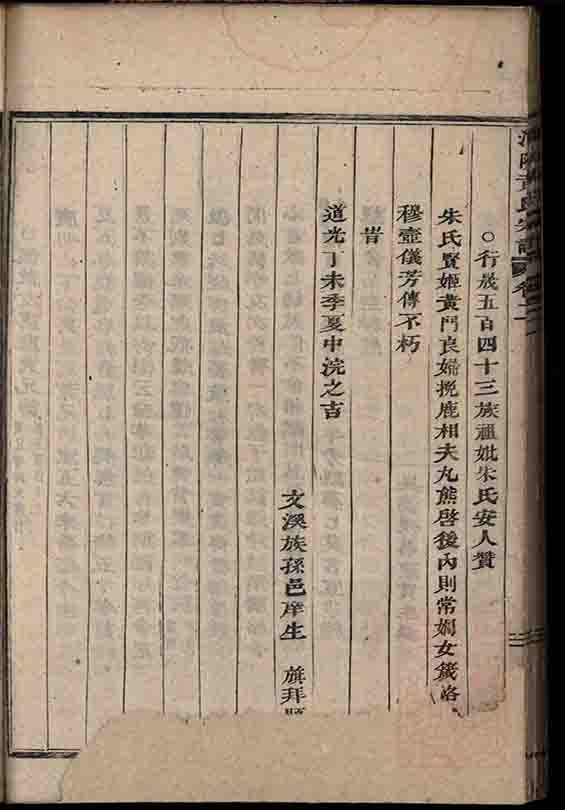 ○行晟五百四十三族祖妣朱氏安人贊
朱氏賢姬黃門良婦挽鹿相夫丸熊啓後內則常嫻女箴洛
穆壼儀芳傳不朽
峕
道光丁未季夏中浣之吉
文溪族孫邑庠生 旗拜題
黃氏宗譜 卷二